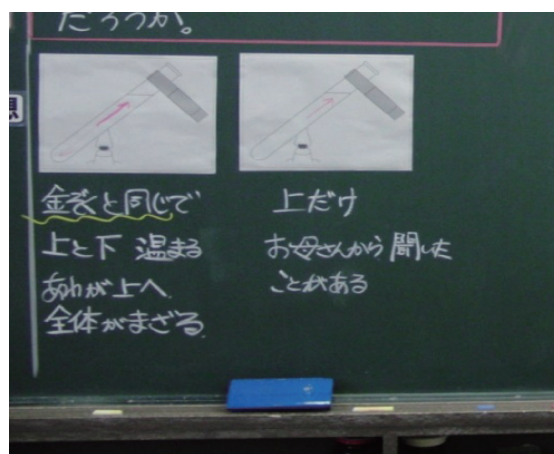 だろうか。
想
金ぞくと同じで
上と下 温まる
あわが上へ
全体がまざる。
上だけ
お母さんから聞いた
ことがある